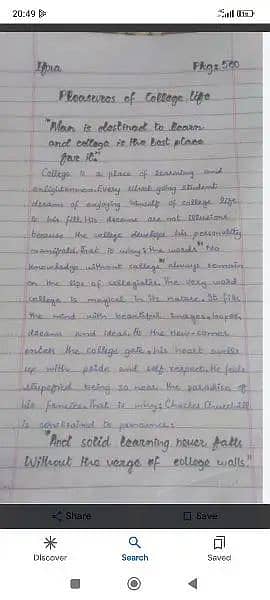 20:49
Ifra
Pleasures of College life
"Man is destined to learn
and college is the best place
for it."
College is a place of learning and
enlightenment. Every school going student
dreams of enjoying himself of college life
to his fill. His dreams are not illusions
because the college develops his personality
manifold. That is why the words "No
knowledge without college" always remain
on the lips of collegiates. The very word
college is magical in its nature. It fills
the mind with beautiful images, hopes,
dreams and ideas. As the new-comer
enters the college gate, his heart swells
up with pride and self respect. He feels
stupefied being so near the paradise of
his fancies. That is why, Charles Churchill
is constrained to pronounce:
"And solid learning never falls
Without the verge of college walls."
Share
Save
Discover
Search
Saved